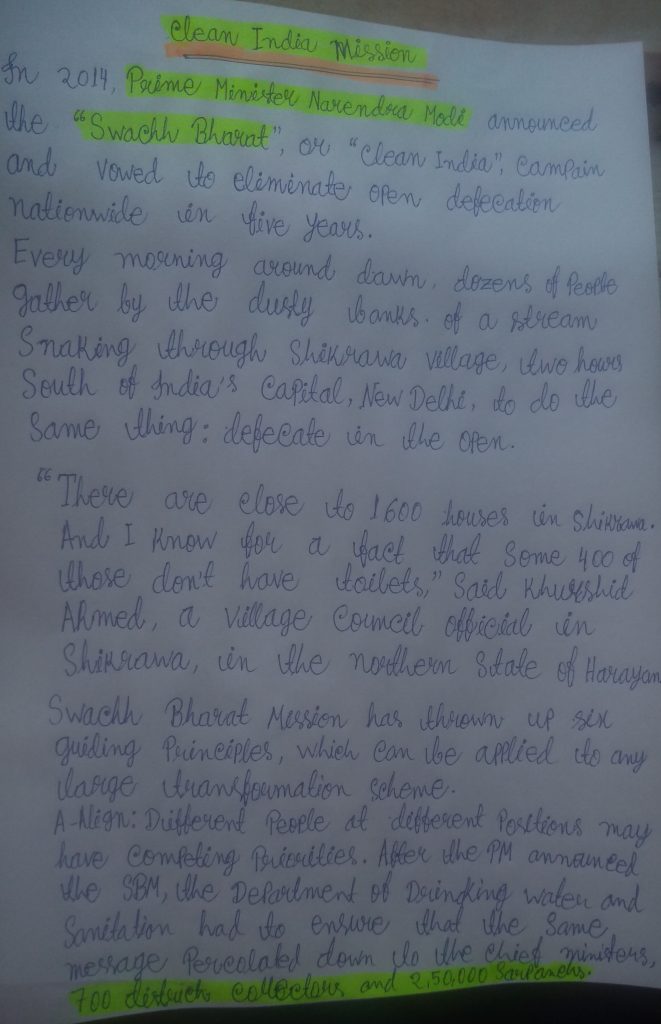 Clean India Mission
In 2014, Prime Minister Narendra Modi announced
the "Swachh Bharat", or "Clean India", Campain
and vowed to eliminate open defecation
nationwide in five years.
Every morning around dawn, dozens of People
gather by the dusty banks. of a stream
Snaking through Shikrawa village, two hours
South of India's Capital, New Delhi, to do the
Same thing: defecate in the open.
"There are close to 1600 houses in Shikrawa.
And I know for a fact that Some 400 of
those don't have toilets," Said Khurshid
Ahmed, a village Council official in
Shikrawa, in the northern State of Harayan
Swachh Bharat Mission has thrown up six
guiding Principles, which can be applied to any
large transformation scheme.
A-Align: Different People at different Positions may
have Competing Priorities. After the PM announced
the SBM, the Department of Dringking water and
Sanitation had to ensure that the Same
message Percolated down to the chief ministers,
700 district collectors and 2,50,000 Sarpanchs.